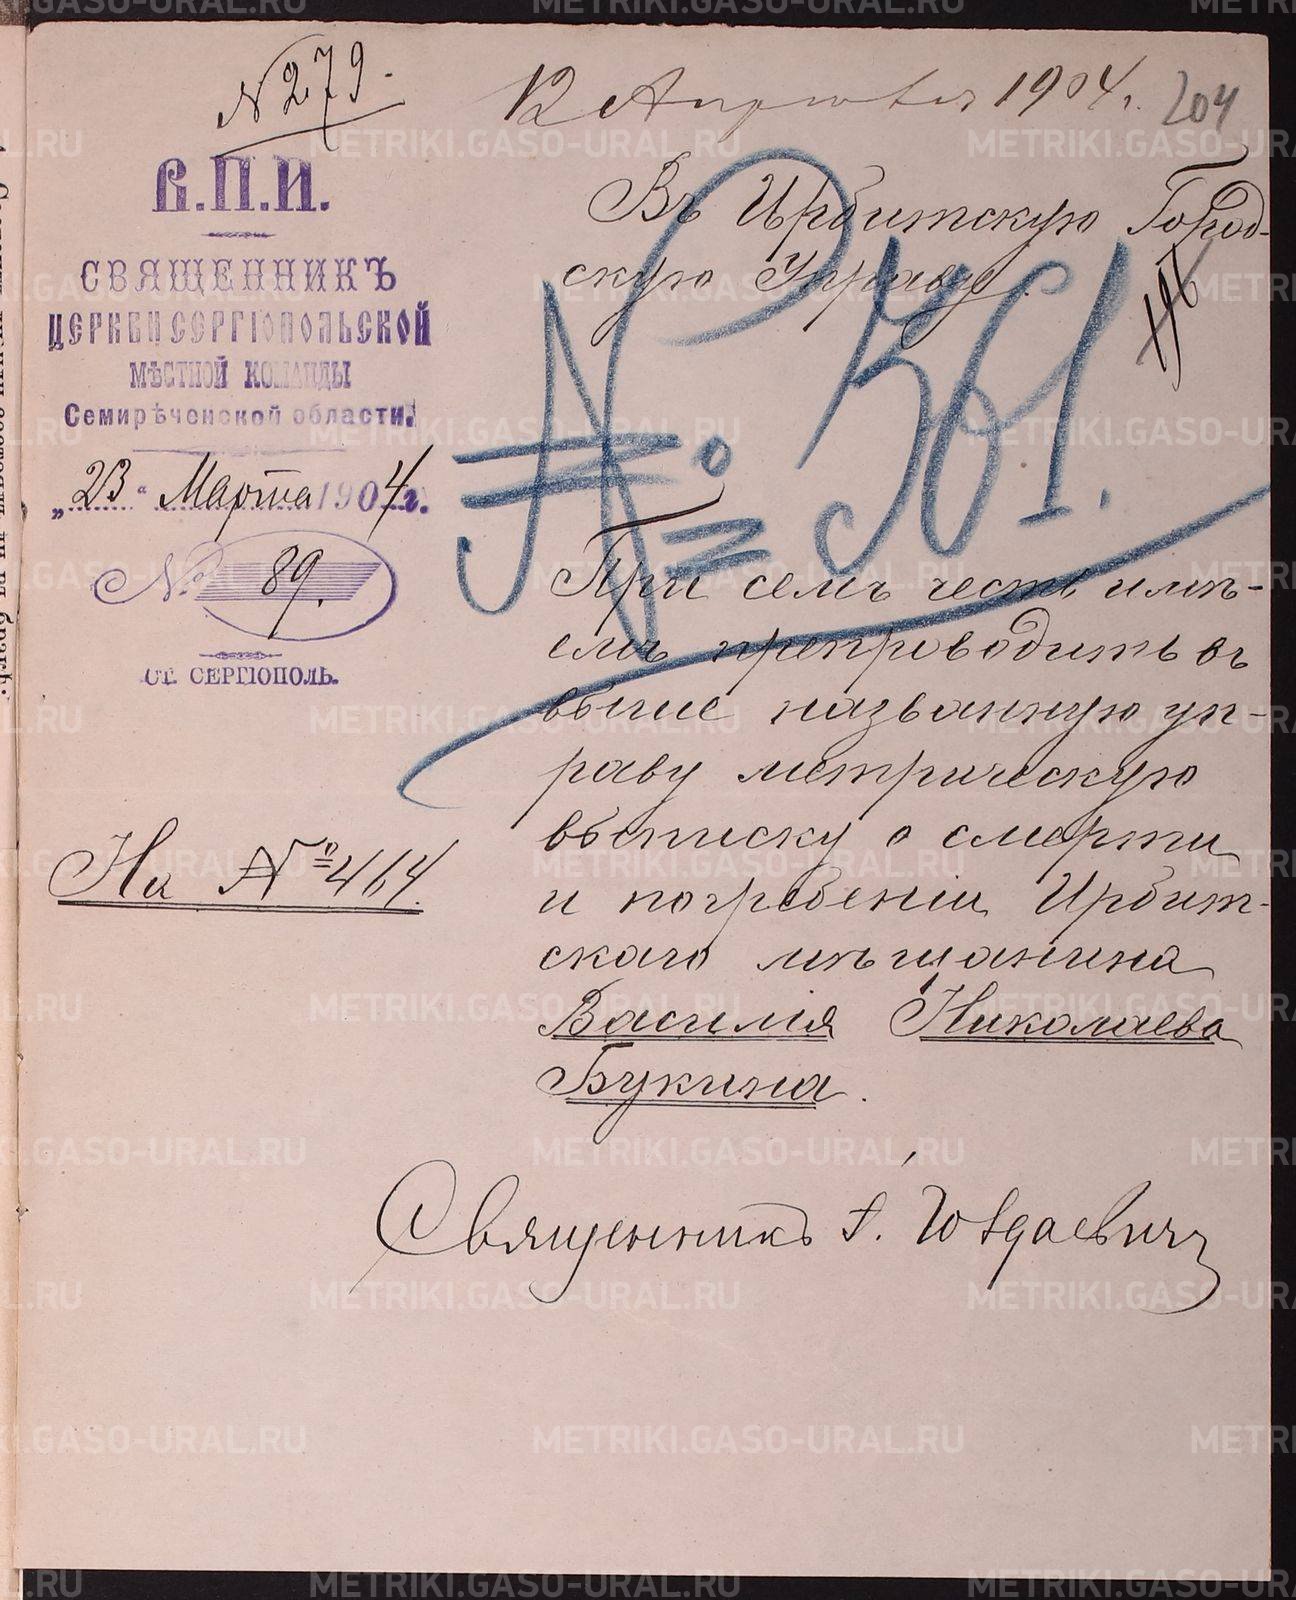 № 279.
12 Апреля 1904 г.
204
В.П.И.
СВЯЩЕННИКЪ
ЦЕРКВИ СЕРГІОПОЛЬСКОЙ
МѢСТНОЙ КОМАНДЫ
Семирѣченской области.
„23“ Марта 1904 г.
№ 89.
СТ. СЕРГІОПОЛЬ.
На № 464.
Въ Ирбитскую Город-
скую Управу.
196
№ 561.
При семъ честь имѣ-
емъ препроводить въ
выше названную уп-
раву метрическую
выписку о смерти
и погребеніи Ирбит-
скаго мѣщанина
Василія Николаева
Букина.
Священникъ
METRIKI.GASO-URAL.RU